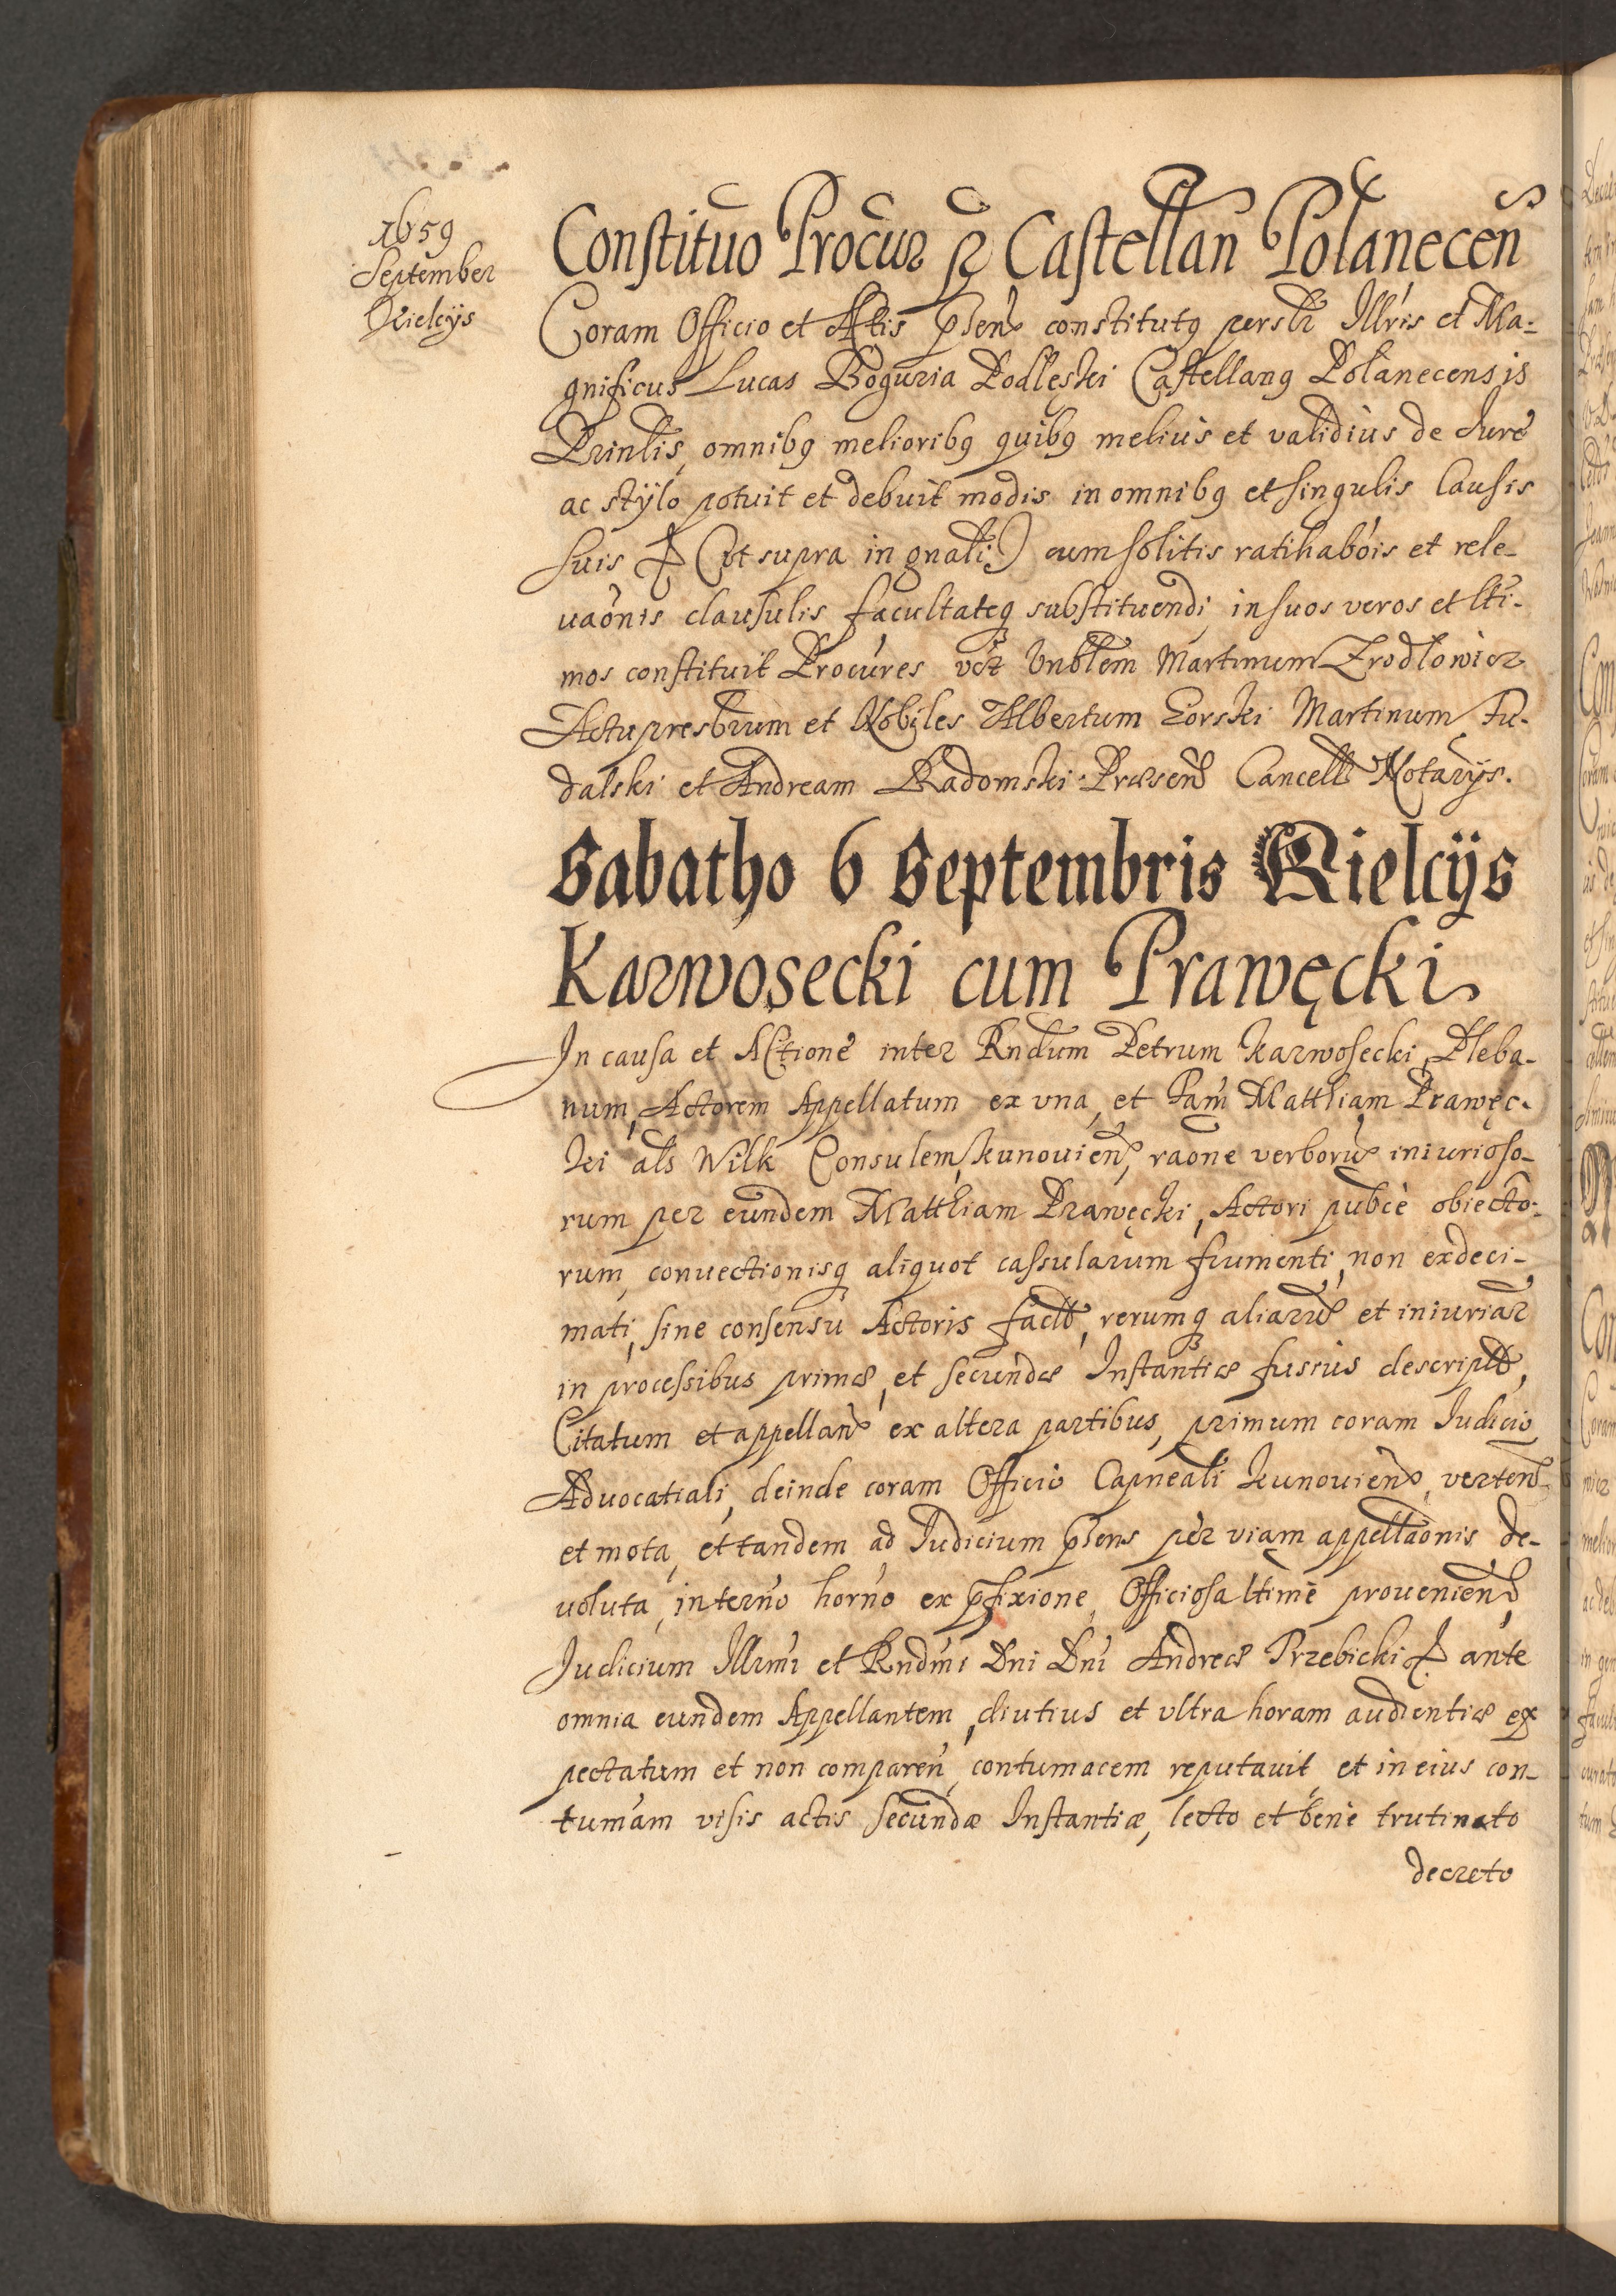 1659
September
Kielcÿs
Constituo Procur p Castellan Polanecen
Coram Officio et Actis p̄sen constitutq persłr Illris et Ma-
gnificus Lucas Boguria Podlęski Castellanq Polanecensis
Prinłis, omnibq melioribq quibq melius et validius de Jure
ac stÿlo potuit et debuit modis in omnibq et singulis Causis
suis (vt supra in gnali) cum solitis ratihabóis et rele-
vaónis clausulis facultateq substituendi, in suos veros et łti-
mos constituit Procúres vcz Vnblem Martinum Zrodłowicz
Actupresbrum et Nobiles Albertum Gorski Martinum Fu-
dalski et Andream Radomski Præsen Cancell Notarÿs.
Sabatho 6 Septembris Kielcÿs
Karwosecki cum Prawęcki
In causa et Actione inter Rndum Petrum Karwosecki Pleba-
num, Actorem Appellatum ex vna, et Fam Matthiam Prawęc-
ki als Wilk Consulem Kunovien, raóne verboru iniurioso-
rum per eundem Matthiam Prawęcki, Actori pubcè obiecto-
rum, convectionisq aliquot cassularum frumenti, non exdeci-
mati, sine consensu Actoris fact, rerumq aliaru et iniuriar
in processibus primæ, et secundæ Instantiæ fusius descript,
Citatum et appellan ex altera partibus, primum coram Iudicio
Aduocatiali, deinde coram Officio Capneali Kunouien, verten
et mota, et tandem ad Iudicium p̄sens per viam appellaónis de-
uoluta, in terno horno ex p̄fixione, Officiosa łtime prouenien
Iudicium Illrmi et Rndmi Dni Dni Andreæ Trzebicki ante
omnia eundem Appellantem, diutius et vltra horam audientiæ ex
pectatum et non comparen, contumacem reputauit, et in eius con-
tumám visis actis secundæ Instantiæ, lecto et bene trutinato
decreto